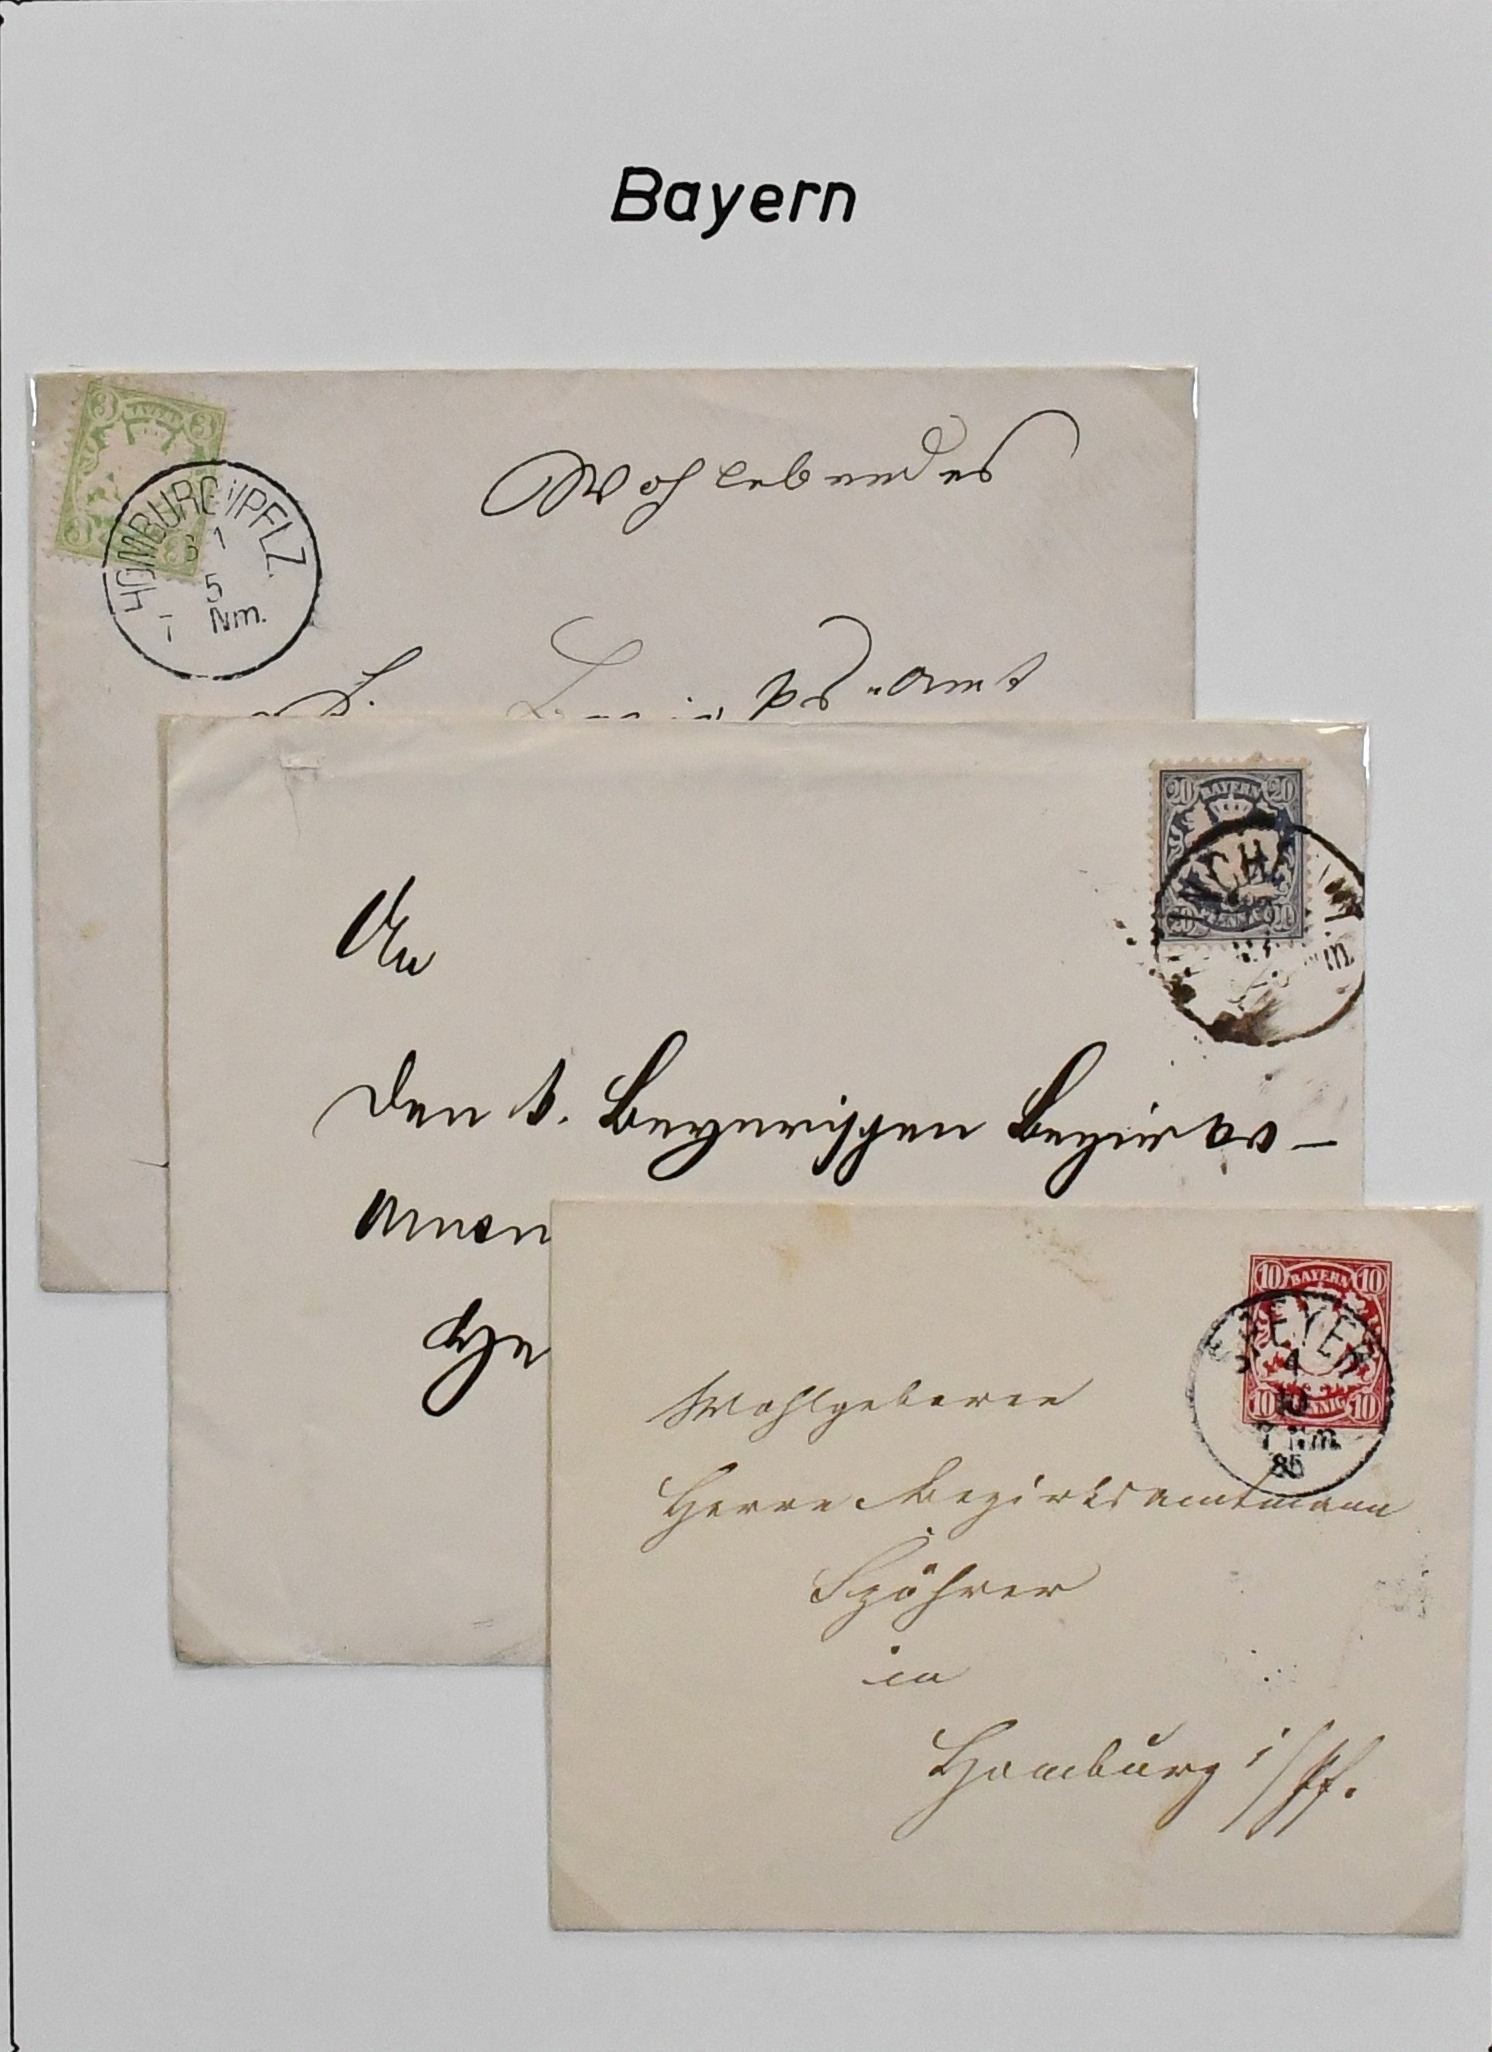 Bayern
3 3
3 3
HOMBURG i/PFLZ.
1
5
7 Nm.
Wohllebendes
amt
20 BAYERN 20
20 PFENNIG 20
NCHE
An
den k. Bayerischen Bezirks-
He
10 BAYERN 10
10 PFENNIG 10
SPEYER
4
10
7 Nm.
85
Wohlgeboren
Herrn Bezirksamtmann
Spöhrer
in
Homburg i/Pf.